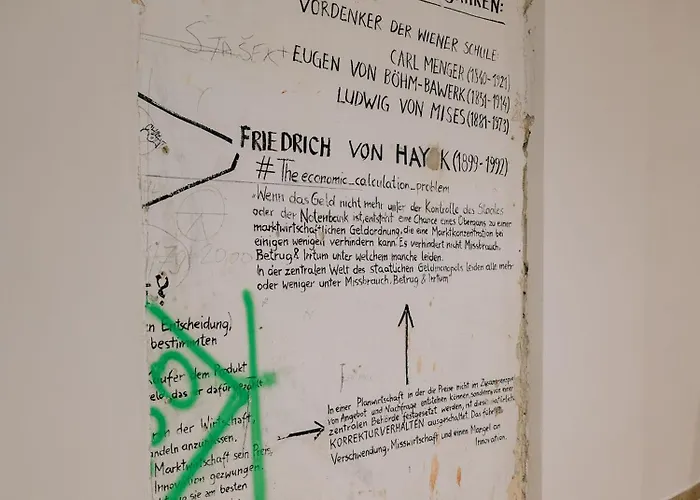 VORDENKER DER WIENER SCHULE:
CARL MENGER (1840-1921)
EUGEN VON BÖHM-BAWERK (1851-1914)
LUDWIG VON MISES (1881-1973)
STAŠEK
FRIEDRICH VON HAY K (1899-1992)
# The economic_calculation_problem
„Wenn das Geld nicht mehr unter der Kontrolle des Staates
oder der Notenbank ist, entsteht eine Chance eines Übergangs zu einer
marktwirtschaftlichen Geldordnung, die eine Marktkonzentration bei
einigen wenigen verhindern kann. Es verhindert nicht Missbrauch,
Betrug & Irrtum unter welchem manche leiden.
In der zentralen Welt des staatlichen Geldmonopols leiden alle mehr
oder weniger unter Missbrauch, Betrug & Irrtum"
n Entscheidung,
bestimmten
Käufer dem Produkt
das er dafür
der Wirtschaft,
andeln anzupassen.
Marktwirtschaft sein Preis,
Innovation gezwungen.
sie am besten
In einer Planwirtschaft in der die Preise nicht im Zusammenspiel
von Angebot und Nachfrage entstehen können, sondern von einer
zentralen Behörde festgesetzt werden, ist dieses natürliche
KORREKTURVERHALTEN ausgeschaltet. Das führt zu
Verschwendung, Misswirtschaft und einem Mangel an
Innovation.